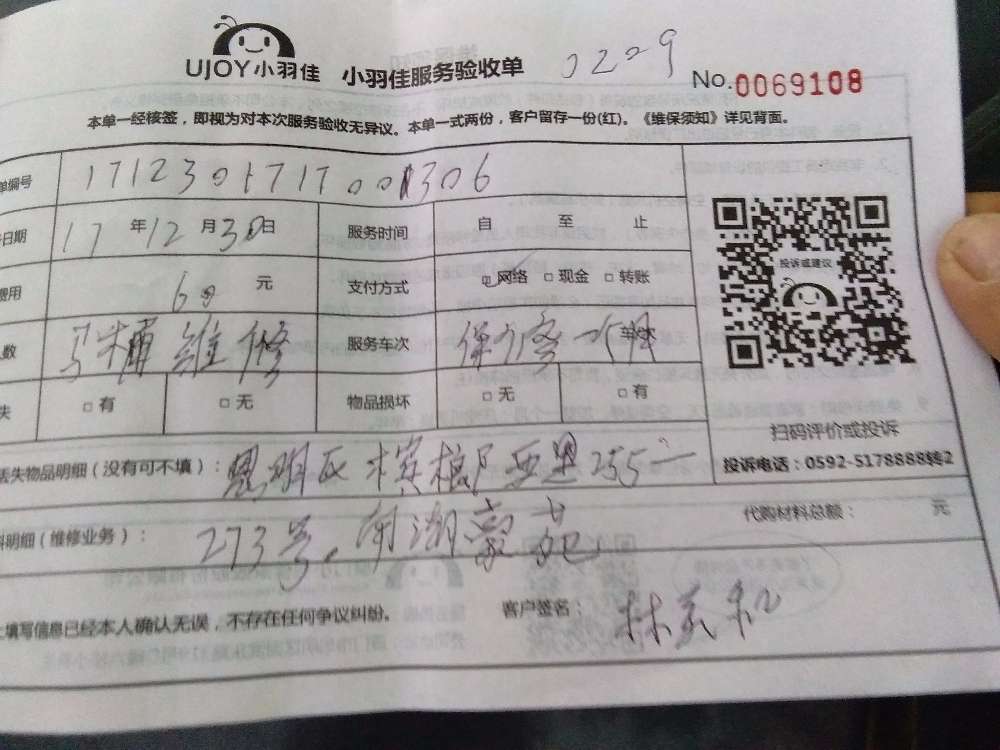 UJOY小羽佳 小羽佳服务验收单 0229 No.0069108
本单一经核签，即视为对本次服务验收无异议。本单一式两份，客户留存一份(红)。《维保须知》详见背面。
单编号 171230171700306
日期 17年12月30日 服务时间 自 至 止
费用 60 元 支付方式 网络 □ 现金 □ 转账
人数 马桶维修 服务车次
失 □ 有 □ 无 物品损坏 □ 无 □ 有
投诉或建议
扫码评价或投诉
投诉电话：0592-5178888转2
丢失物品明细（没有可不填）： 思明区槟榔西里255
料明细（维修业务）： 273号，南湖豪苑 代购材料总额： 元
上填写信息已经本人确认无误，不存在任何争议纠纷。 客户签名：